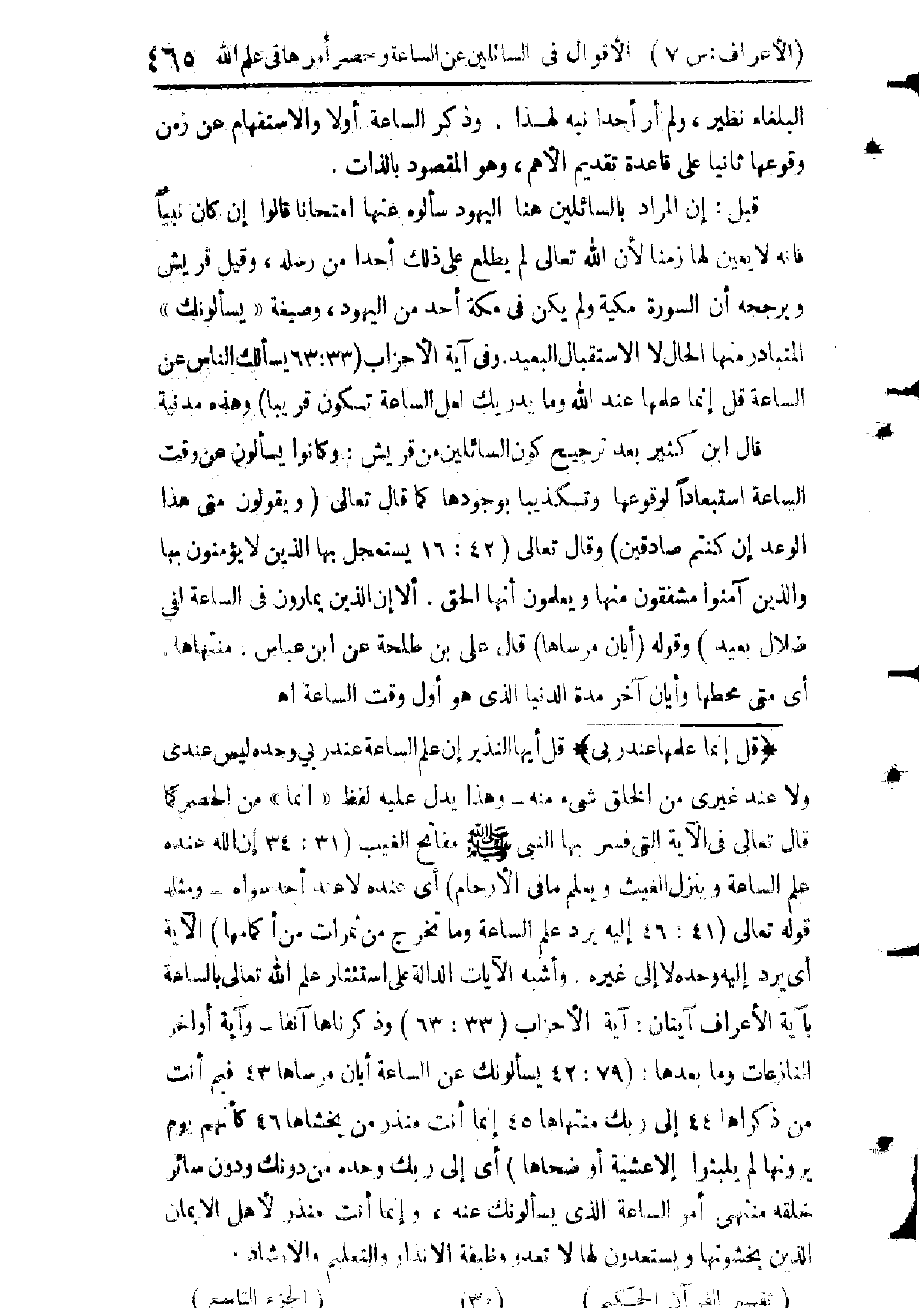 (الأعراف: س ٧) الأقوال فى السائلين عن الساعة وحصر أمرها فى علم الله ٤٦٥
البلغاء نظير، ولم أر أحدا نبه لهذا . وذكر الساعة أولا والاستفهام عن زمن
وقوعها ثانيا على قاعدة تقديم الأهم، وهو المقصود بالذات .
قيل : إن المراد بالسائلين هنا اليهود سألوه عنها امتحانا قالوا إن كان نبياً
فانه لا يعين لها زمنا لأن الله تعالى لم يطلع على ذلك أحدا من رسله ، وقيل قريش
ويرجحه أن السورة مكية ولم يكن فى مكة أحد من اليهود ، وصيغة « يسألونك »
المتبادر منها الحال لا الاستقبال البعيد. وفى آية الأحزاب (٣٣:٦٣ يسألك الناس عن
الساعة قل إنما علمها عند الله وما يدريك لعل الساعة تسكون قريبا) وهذه مدنية
قال ابن كثير بعد ترجيح كون السائلين من قريش : وكانوا يسألون عن وقت
الساعة استبعاداً لوقوعها وتسكذيبا بوجودها كما قال تعالى ( ويقولون متى هذا
الوعد إن كنتم صادقين) وقال تعالى (٤٢ : ١٦ يستعجل بها الذين لا يؤمنون بها
والذين آمنوا مشفقون منها ويعلمون أنها الحق . ألا إن الذين يمارون فى الساعة لفى
ضلال بعيد ) وقوله (أيان مرساها) قال على بن طلحة عن ابن عباس . منتهاها .
أى متى محطها وأيان آخر مدة الدنيا الذى هو أول وقت الساعة اه
﴿قل إنما علمها عند ربى﴾ قل أيها النذير إن علم الساعة عند ربي وحده ليس عندى
ولا عند غيرى من الخلق شىء منه ـ وهذا يدل عليه لفظ « انما » من الحصر كما
قال تعالى فى الآية التى فسر بها النبى ﷺ مفاتح الغيب (٣١ : ٣٤ إن الله عنده
علم الساعة وينزل الغيث ويعلم مافى الأرحام) أى عنده لا عند أحد سواه ـ ومثله
قوله تعالى (٤١ : ٤٦ إليه يرد علم الساعة وما تخرج من ثمرات من أكمامها ) الآية
أى يرد إليه وحده لا إلى غيره . وأشبه الآيات الدالة على استئثار علم الله تعالى بالساعة
بآية الأعراف آيتان : آية الأحزاب ( ٣٣ : ٦٣ ) وذكرناها آنفا ـ وآية أواخر
النازعات وما بعدها : (٧٩ : ٤٢ يسألونك عن الساعة أيان مرساها ٤٣ فيم أنت
من ذكراها ٤٤ إلى ربك منتهاها ٤٥ إنما أنت منذر من يخشاها ٤٦ كأنهم يوم
يرونها لم يلبثوا إلا عشية أو ضحاها ) أى إلى ربك وحده من دونك ودون سائر
خلقه منتهى أمر الساعة الذى يسألونك عنه ، وإنما أنت منذر لأهل الايمان
الذين يخشونها ويستعدون لها لا تعدو وظيفة الانذار والتعليم والارشاد .
( تفسير القرآن الحكيم ) (٣٠) ( الجزء التاسع )